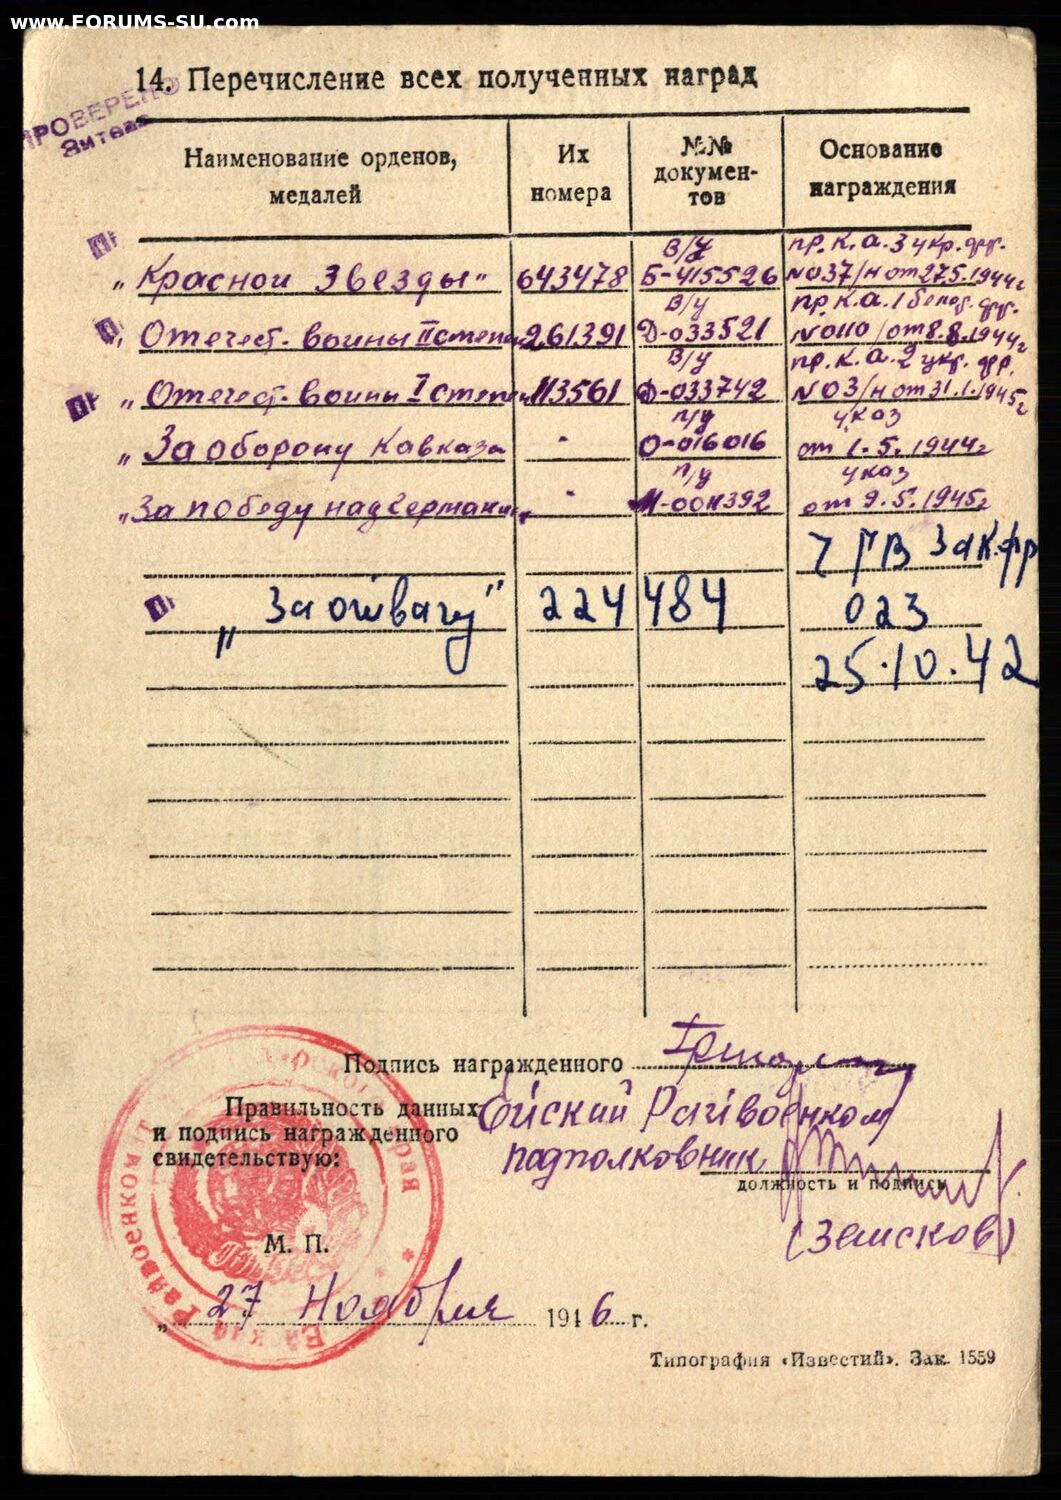 www.FORUMS-SU.com
14. Перечисление всех полученных наград
ПРОВЕРЕНО
Наименование орденов, медалей
Их номера
№№ документов
Основание награждения
в/у пр. К. А. 3 Укр. фр.
„Красной Звезды" 643478 Б-415526 №037/н от 27.5.1944г
в/у пр. К. А. 1 белор. фр.
Отечест. войны II степен 261391 Д-033521 №0110/ от 8.8.1944г
в/у пр. К. А. 2 укр. фр.
„Отечест. войны I степен 113561 Д-033742 №03/н от 31.1.1945г
п/у указ
„За оборону Кавказа - О-016016 от 1.5.1944г
п/у указ
„За победу над Германией - от 9.5.1945г
ЧГВ Закфр
„За отвагу" 224484 023
25.10.42
Подпись награжденного
Правильность данных
и подпись награжденного
свидетельствую:
Ейский Райвоенком
подполковник
должность и подпись
(Земсков)
М. П.
„27 Ноября 1946 г.
Типография «Известий». Зак. 1559